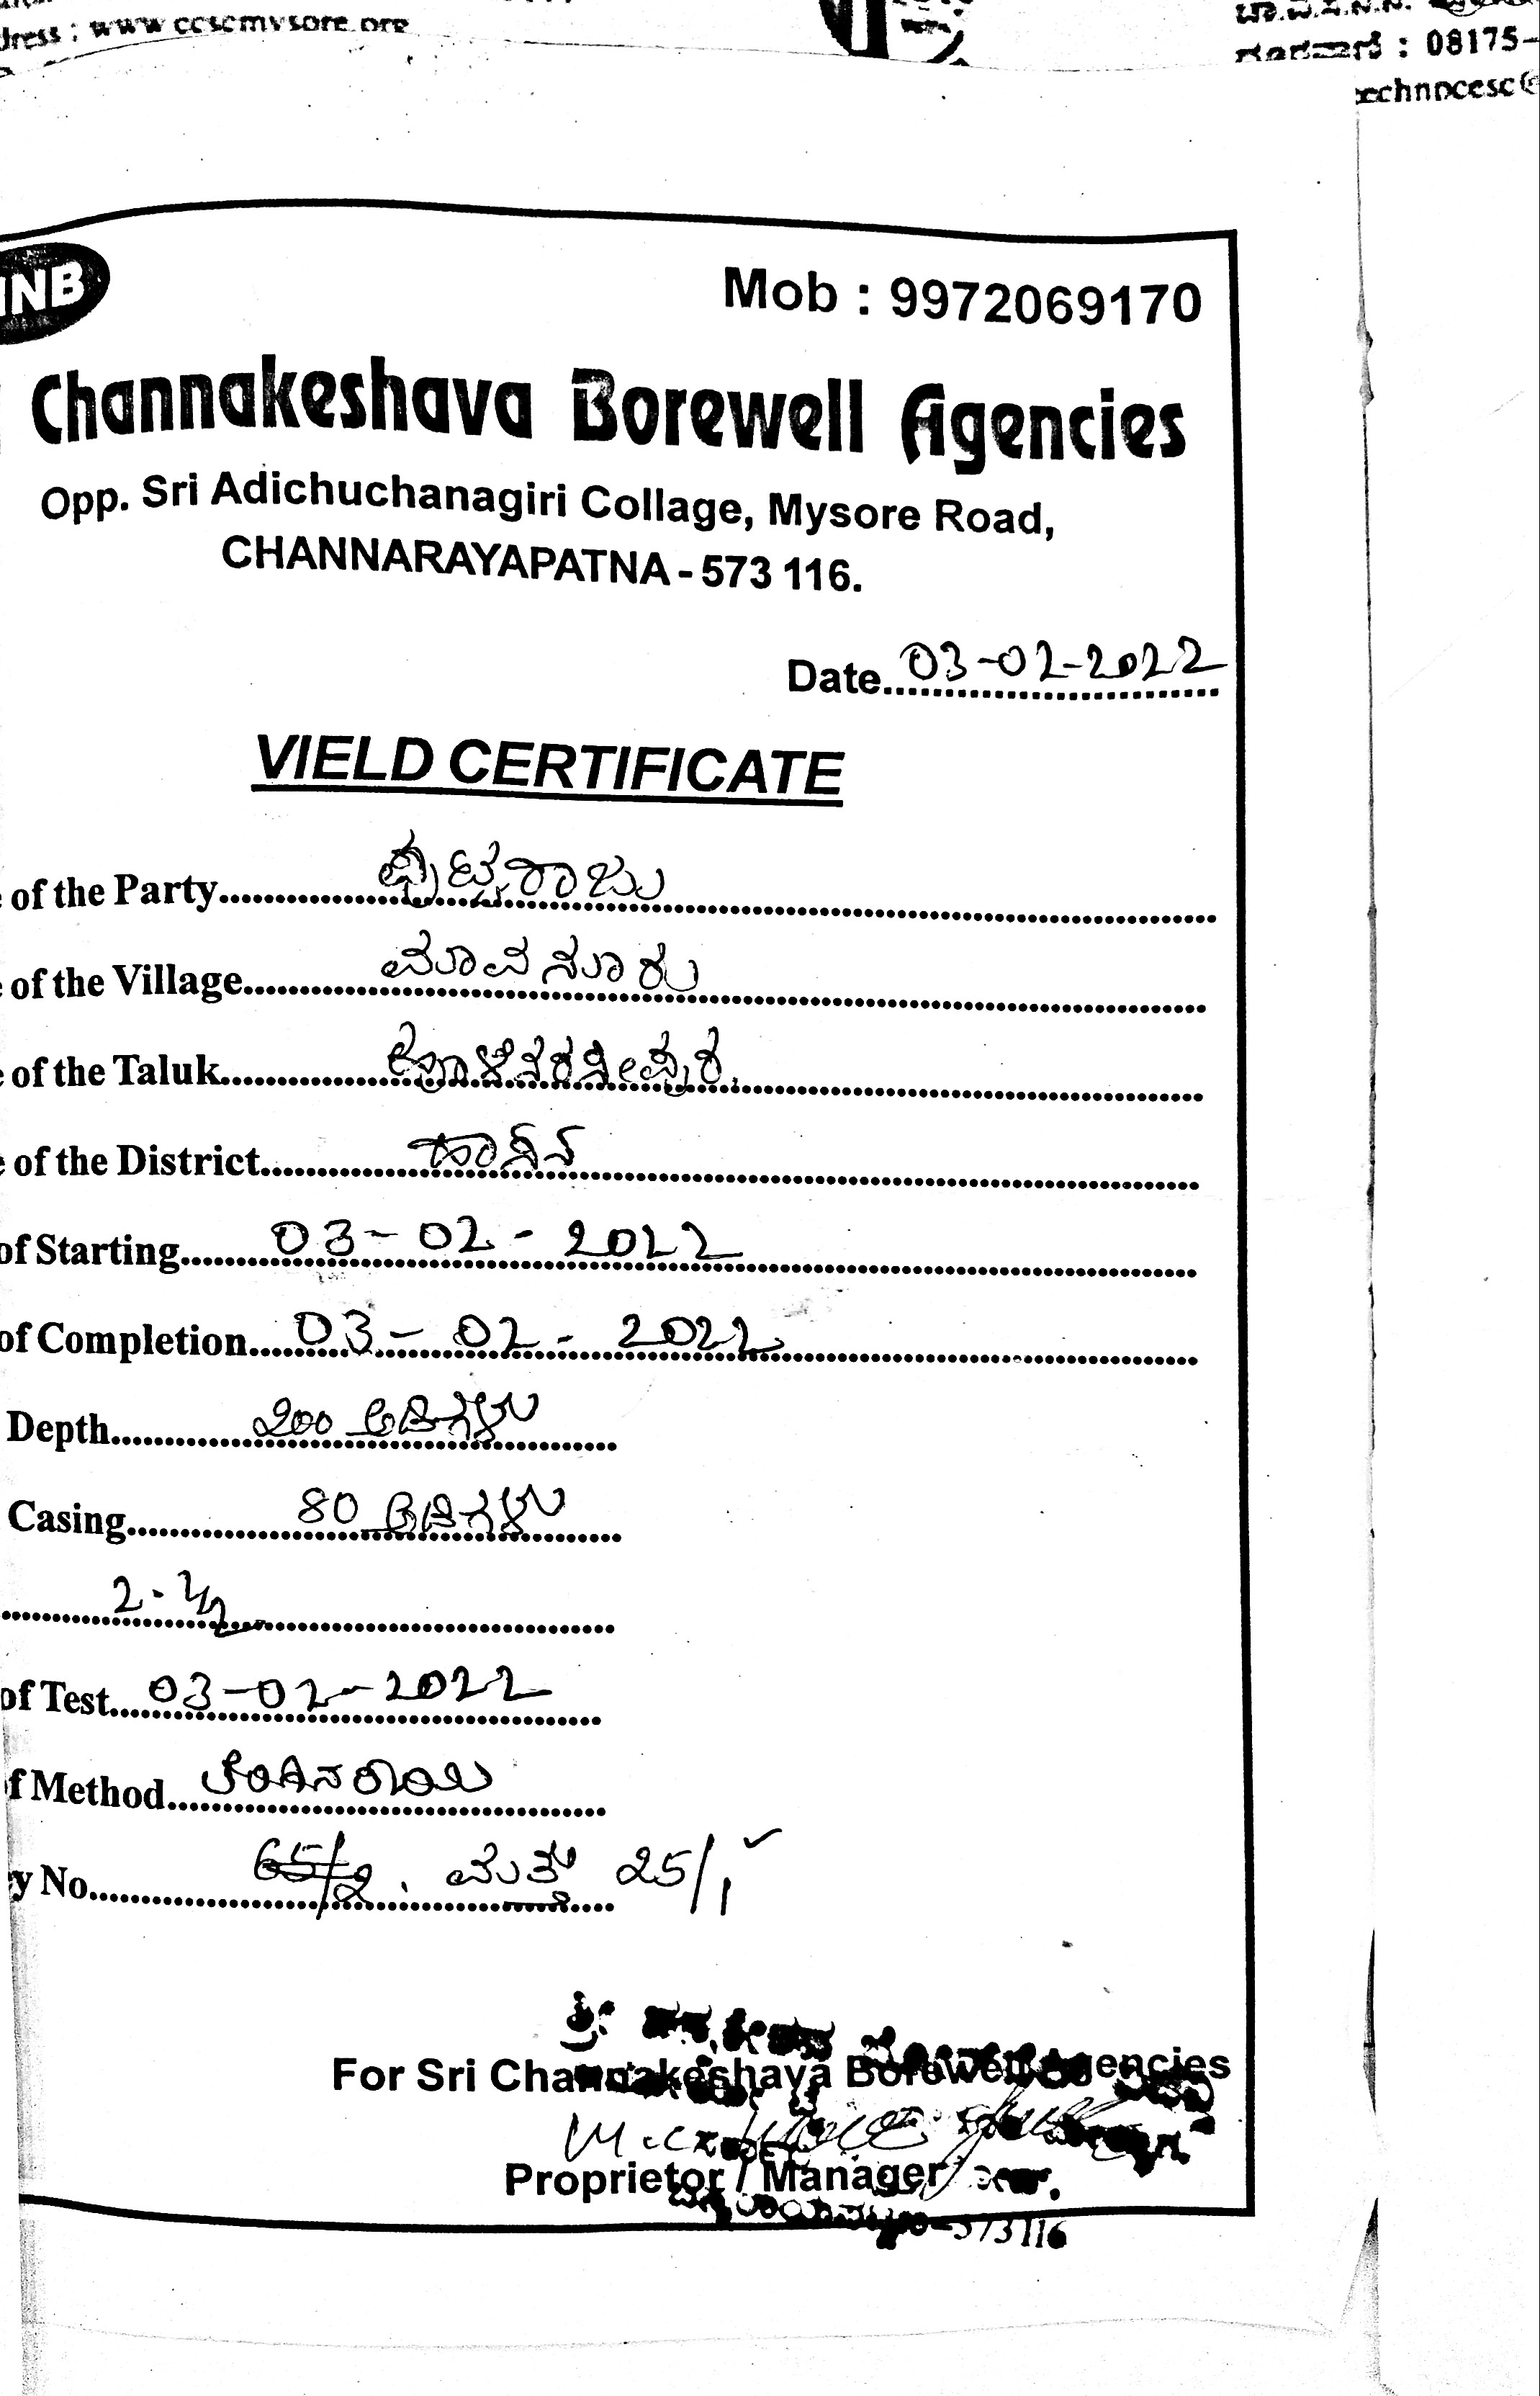 dress : www.cescmysore.org
: 08175-
technocesc@
NB
Mob : 9972069170
Channakeshava Borewell Agencies
Opp. Sri Adichuchanagiri Collage, Mysore Road,
CHANNARAYAPATNA - 573 116.
Date 03-02-2022
VIELD CERTIFICATE
of the Party
of the Village ಮಾವನೂರು
of the Taluk ಹೊಳೆನರಸೀಪುರ
of the District ಹಾಸನ
of Starting 03-02-2022
of Completion 03-02-2022
Depth 200 ಅಡಿಗಳು
Casing 80 ಅಡಿಗಳು
2-1/2
of Test 03-02-2022
f Method
y No 65/2. ಮತ್ತು 25/1
For Sri Channakeshava Borewell Agencies
Proprietor / Manager
-573116